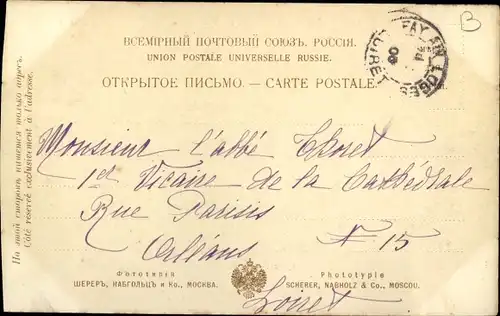 B
ВСЕМІРНЫЙ ПОЧТОВЫЙ СОЮЗЪ. РОССІЯ.
UNION POSTALE UNIVERSELLE RUSSIE.
ОТКРЫТОЕ ПИСЬМО. — CARTE POSTALE.
FAY AUX LOGES
LOIRET
На этой сторонѣ пишется только адресъ.
Côté réservé exclusivement à l'adresse.
Monsieur l'abbé
1er Vicaire de la Cathédrale
Rue Parisis
Orléans № 15
Loiret
Фототипія
ШЕРЕРЪ, НАБГОЛЬЦЪ и Ко., МОСКВА.
Phototypie
SCHERER, NABHOLZ & Co., MOSCOU.